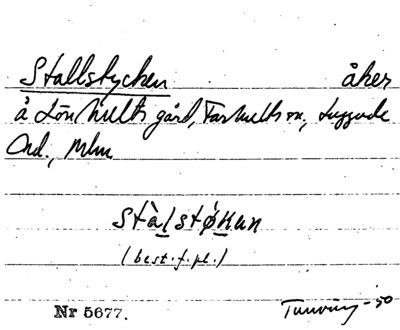 Stallstycken åker
å Lönhults gård, Farhults sn, Luggude
hd., Mlm
stàlstøkan
(best.f.pl.)
Nr 5677. -50